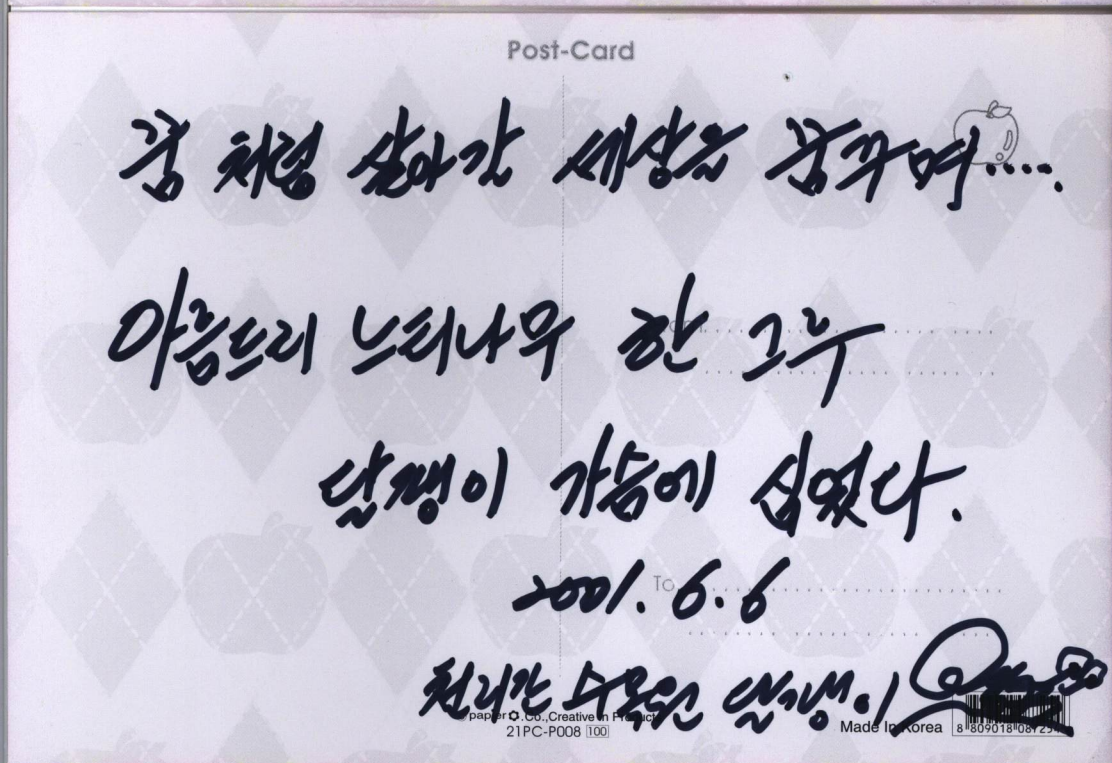 Post-Card
꿈처럼 살아갈 세상을 꿈꾸며.....
아름드리 느티나무 한 그루
달팽이 가슴에 심었다.
2001. 6. 6
To
천리간 수목원 달팽이
papier Co.,Creative in Product
21PC-P008 100
Made In Korea